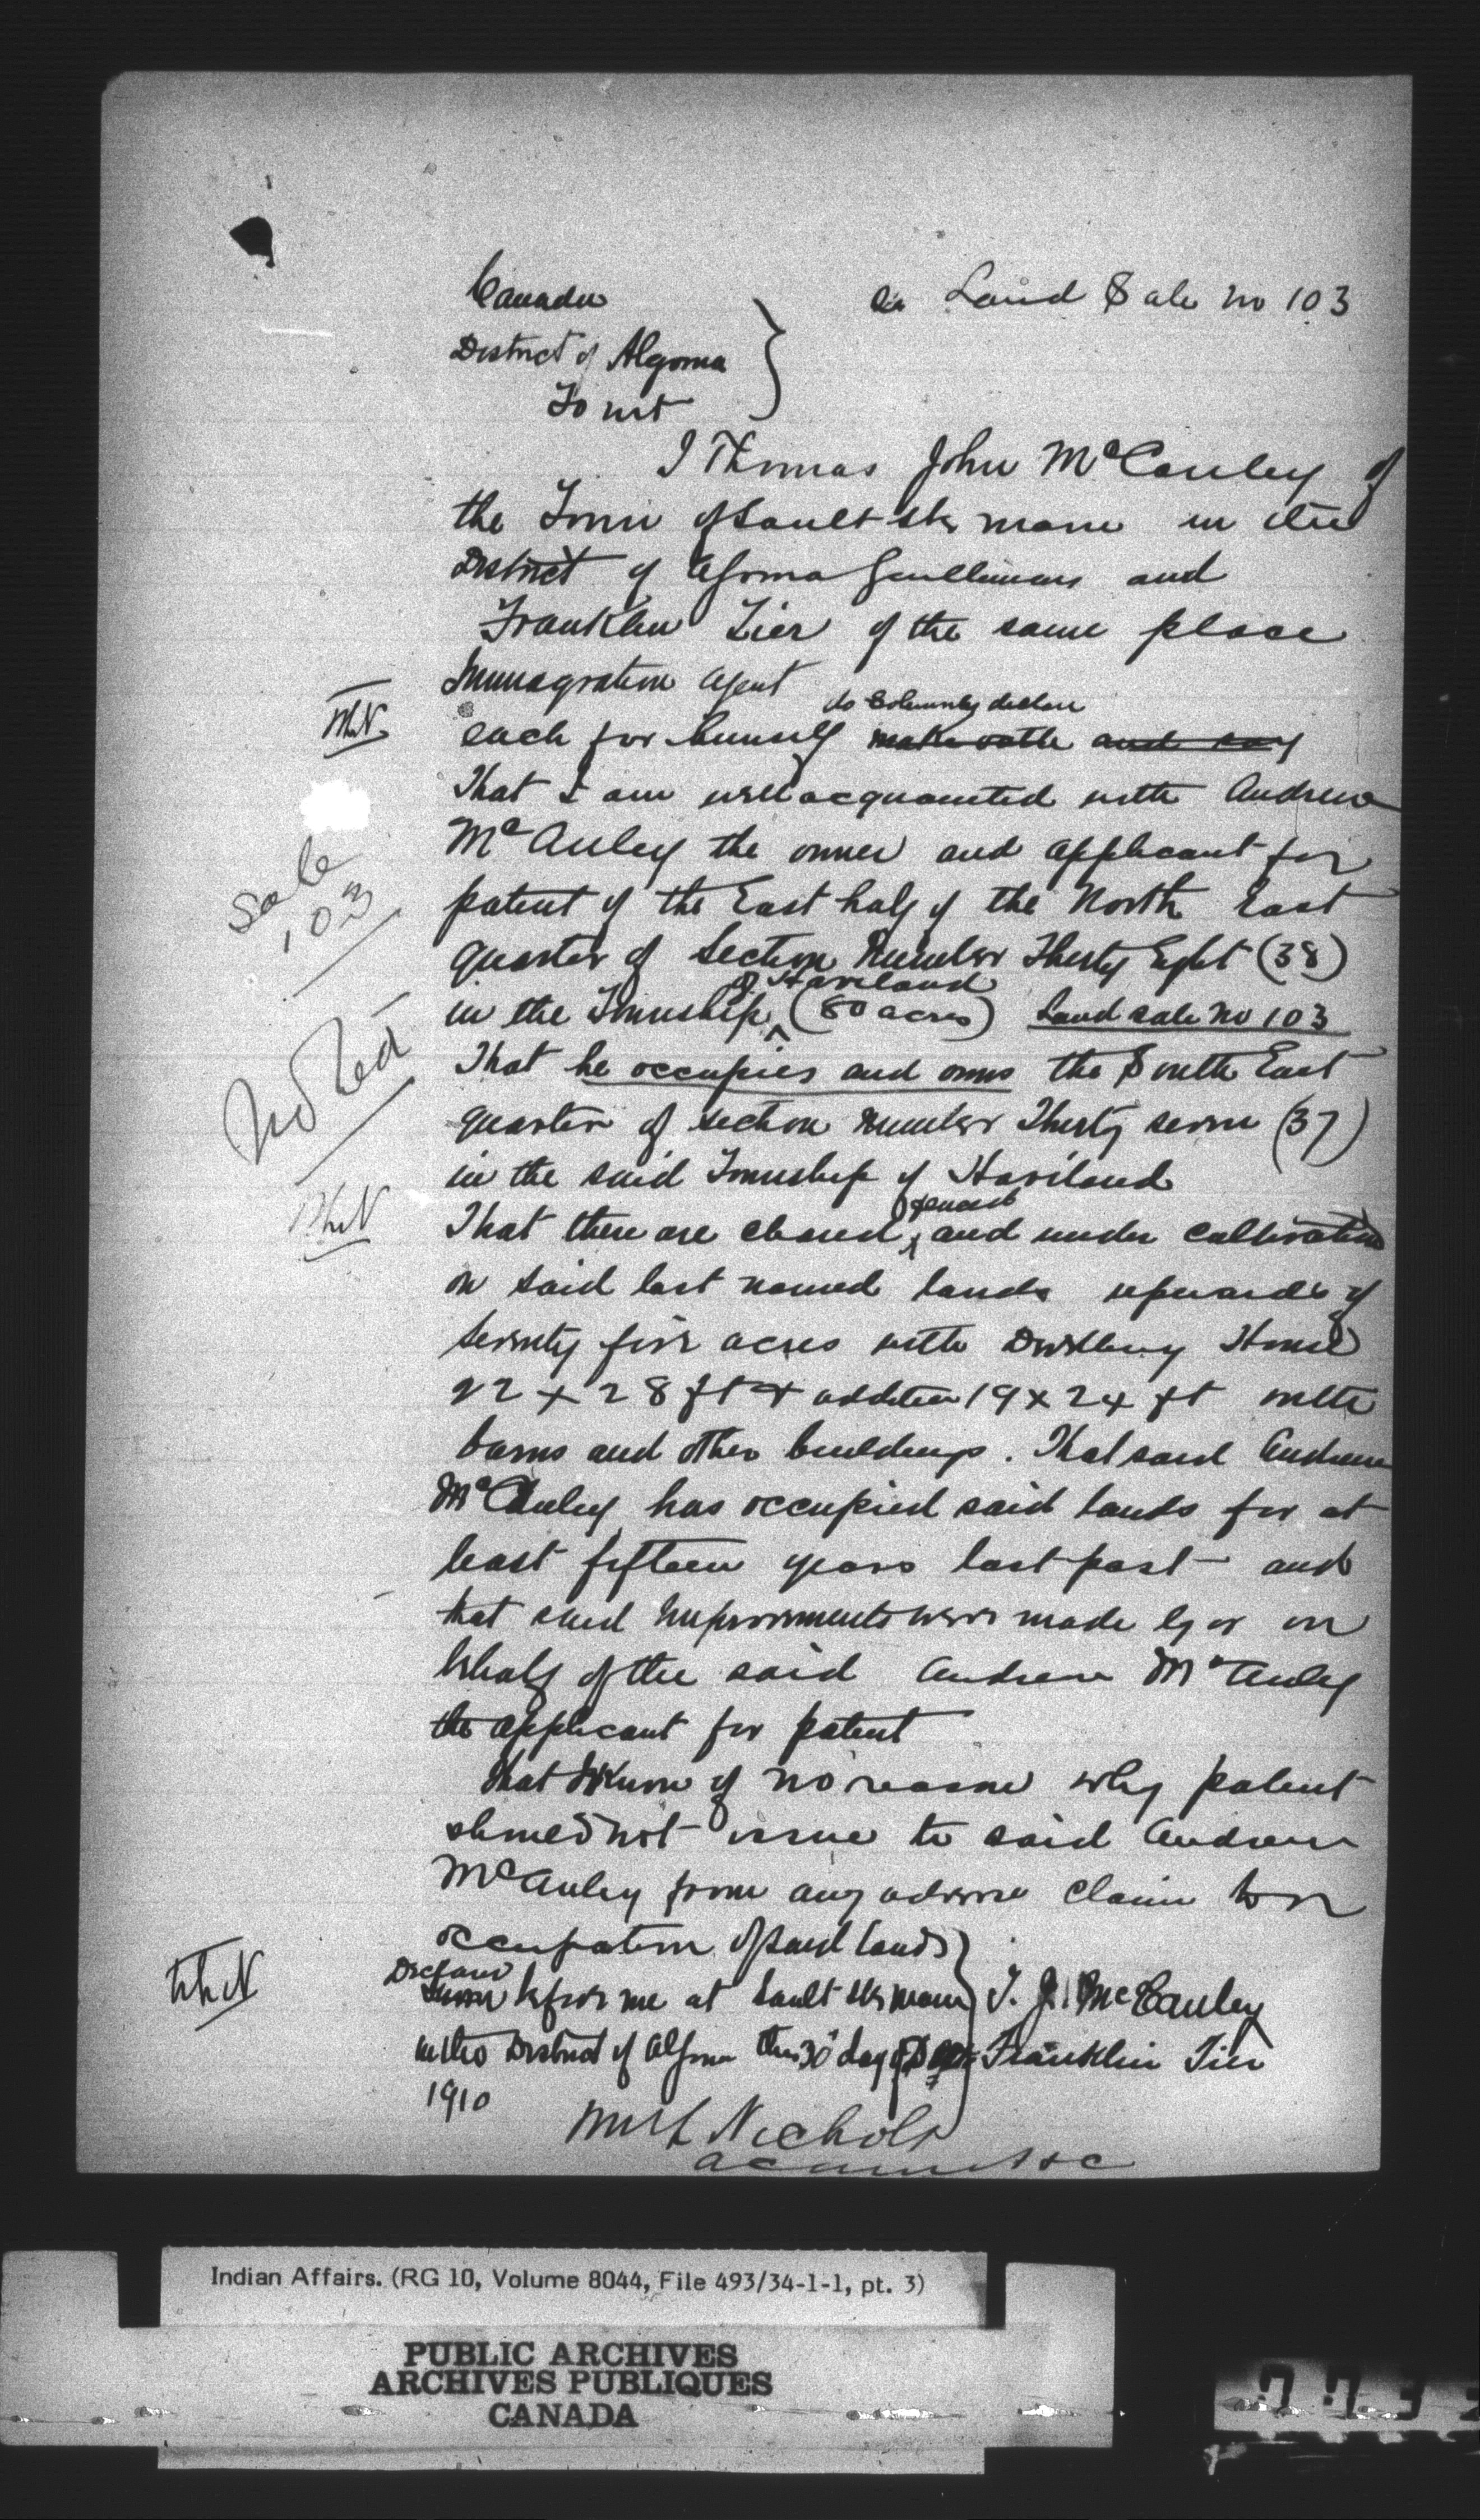 Canada
District of Algoma
To wit
Re Land Sale No 103
I Thomas John McCauley of
the Town of Sault Ste Marie in the
District of Algoma Gentleman and
Franklin Tier of the same place
Immagration Agent
do solemnly declare
each for himself make oath and say
That I am well acquainted with Andrew
McAuley the owner and applicant for
patent of the East half of the North East
quarter of Section Number Thirty Eight (38)
of Haviland
in the Township (80 acres) Land Sale No 103
That he occupies and owns the South East
quarter of section number Thirty seven (37)
in the said Township of Haviland
fenced
That there are cleared, and under cultivation
on said last named lands upwards of
seventy five acres with Dwelling House
22 x 28 ft & addition 19 x 24 ft with
barns and other buildings. That said Andrew
McAuley has occupied said lands for at
least fifteen years last past and
that said improvements were made by or on
behalf of the said Andrew McAuley
the applicant for patent
That I know of no reason why patent
should not issue to said Andrew
McAuley from any adverse claim to or
occupation of said lands
Declared
Sworn before me at Sault Ste Marie
in the District of Algoma this 30 day of
1910
T. J. McCauley
Franklin Tier
Nichols
WhN
Sale
103
Noted
WhN
WhN
Indian Affairs. (RG 10, Volume 8044, File 493/34-1-1, pt. 3)
PUBLIC ARCHIVES
ARCHIVES PUBLIQUES
CANADA